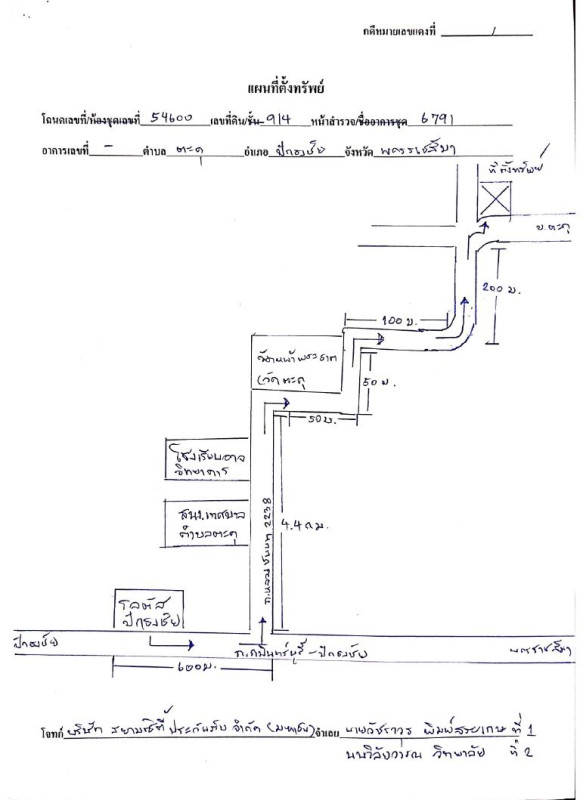 คดีหมายเลขแดงที่ /
แผนที่ตั้งทรัพย์
โฉนดเลขที่/ห้องชุดเลขที่ 54600 เลขที่ดิน/ชั้น 914 หน้าสำรวจ/ชื่ออาคารชุด 6791
อาคารเลขที่ - ตำบล ตะคุ อำเภอ ปักธงชัย จังหวัด นครราชสีมา
ที่ตั้งทรัพย์
บ.ตะคุ
200 ม.
100 ม.
วัดหน้าพระธาตุ
(วัดตะคุ
50 ม.
50 ม.
โรงเรียน
วิทยาคาร
สนง.เทศบาล
ตำบลตะคุ
ถ.หลวงชนบท 2238
4.4 กม.
โลตัส
ปักธงชัย
ปักธงชัย
ถ.กบินทร์บุรี - ปักธงชัย
นครราชสีมา
600 ม.
โจทก์ บริษัท สยามซิตี้ประกันภัย จำกัด (มหาชน) จำเลย ที่ 1
วิทยาลัย ที่ 2